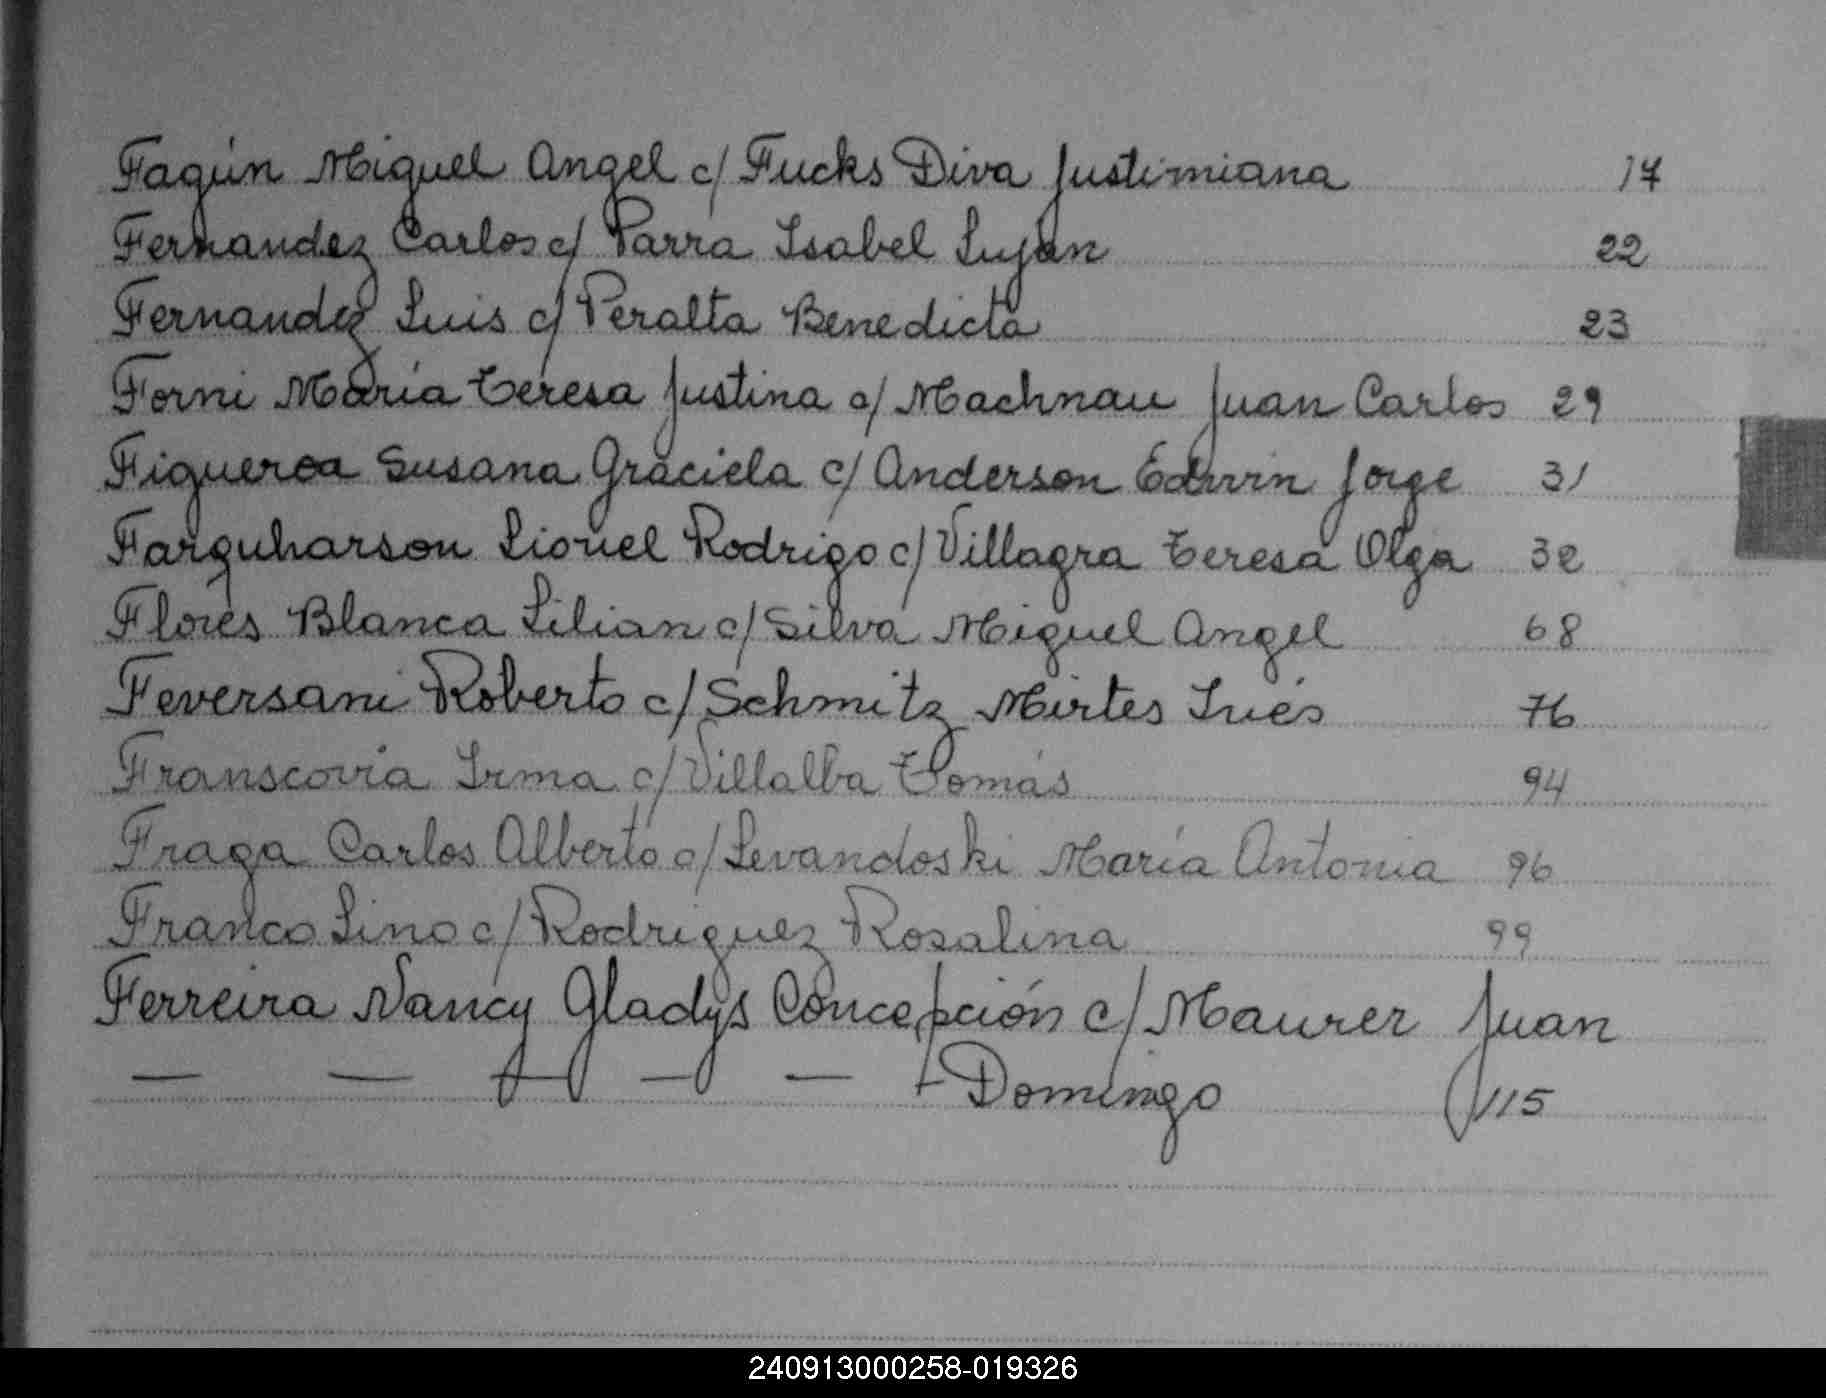 Fagún Miguel Angel c/ Fucks Diva Justimiana 17
Fernandez Carlos c/ Parra Isabel Lujan 22
Fernandez Luis c/ Peralta Benedicta 23
Forni María Teresa Justina c/ Machnau Juan Carlos 29
Figueroa Susana Graciela c/ Anderson Edwin Jorge 31
Farquharson Lionel Rodrigo c/ Villagra Teresa Olga 32
Flores Blanca Lilian c/ Silva Miguel Angel 68
Feversani Roberto c/ Schmitz Mirtes Inés 76
Franscovia Irma c/ Villalba Tomás 94
Fraga Carlos Alberto c/ Levandoski María Antonia 96
Franco Lino c/ Rodriguez Rosalina 99
Ferreira Nancy Gladys Concepción c/ Maurer Juan
— — — — — — Domingo 115
240913000258-019326